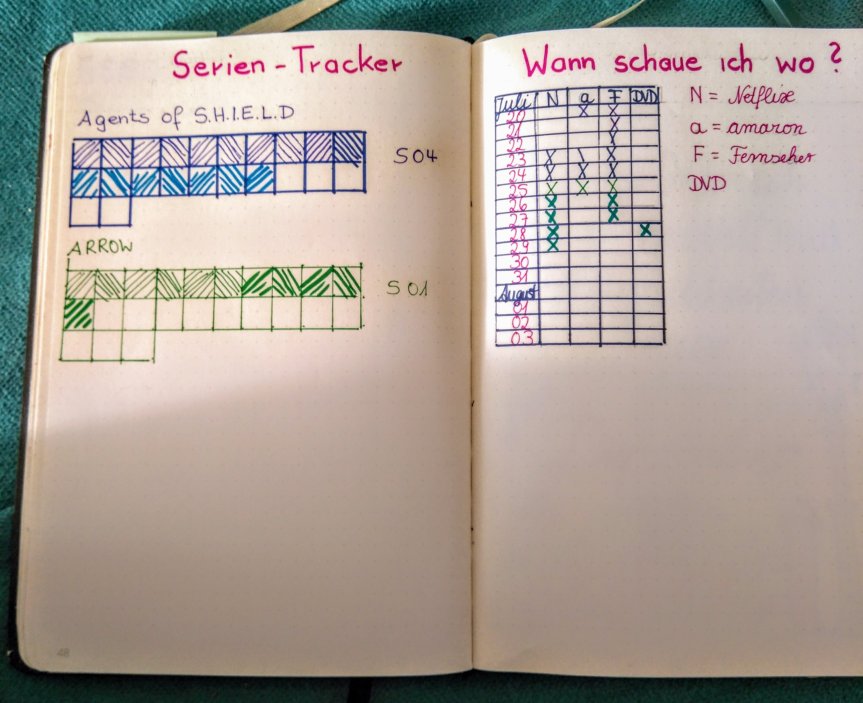 Serien-Tracker
Agents of S.H.I.E.L.D
S04
ARROW
S01
48
Wann schaue ich wo?
Juli N a F DVD
20 X X
21 X
22 X
23 X \ X
24 X X X
25 X X X
26 X X
27 X X
28 X X
29 X
30
31
August
01
02
03
N = Netflix
a = amazon
F = Fernseher
DVD